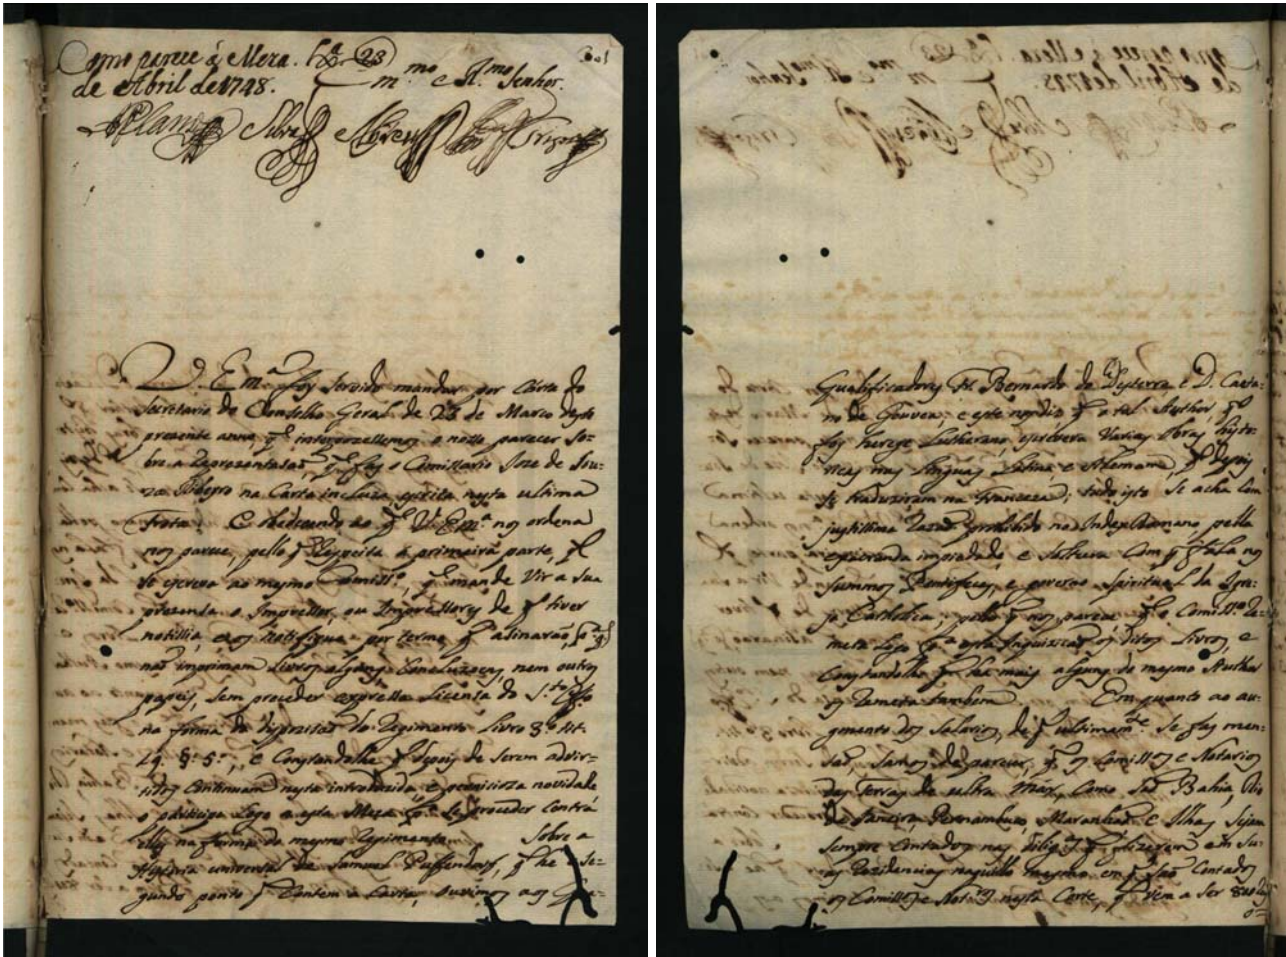 Como parece á Meza. Lxª 23
de Abril de 1748.
Mmo e Rmo Senhor.
Silva Abreu Trigozo
V. Emª foy servido mandar por Carta do
Secretario do Conselho Geral de 23 de Marco deste
presente anno, q̃ interpozessemos o nosso parecer so-
bre a representasaõ, q̃ faz o Comissario Joze de Sou-
za Ribeyro na Carta incluza escrita nesta ultima
Frota. E obedecendo ao q̃ V. Emª nos ordena
nos parece, pello q̃ respeita á primeira parte, q̃
se escreva ao mesmo Comissº, q̃ mande vir a sua
prezenta o Impressor, ou Impressores de q̃ tiver
notissia, e os notifique por termo, q̃ asinaraõ, pª q̃
naõ imprimam Livros alguns, Concluzoens, nem outros
papeis, sem preceder expressa Licensa do S.to Offº
na forma da dispozisaõ do Regimento Livro 3º tit.
19. §. 5º, e Constandolhe q̃ depois de serem adver-
tidos continuam nesta introduzida, e pernicioza novidade
o participe Logo a esta Meza pª se proceder contra
elles na forma do mesmo Regimento. Sobre a
Historia universal de Samuel Puffendorf, q̃ he o se-
gundo ponto q̃ Contem a Carta, ouvimos aos Qua-
Qualificadores Fr. Bernardo do Desterro e D. Caeta-
no de Gouvea; e este nos diz q̃ o tal Author, q̃
foy herege Lutherano, escrevera varias obras histo-
ricas nas Linguas Latina, e Alemam, q̃ depois
se traduziram na Franceza; tudo isto se acha com
justissima razaõ prohibido no Index Romano, pella
execranda impiedade, e soltura com q̃ fala nos
summos Pontifices, e governo Spiritual da Igre-
ja Catholica; pello q̃ nos parece q̃ o Comissº re-
meta Logo pª esta Inquizisaõ os ditos Livros, e
Constandolhe q̃ ha mais alguns do mesmo Author
os remeta tambem. Em quanto ao au-
gmento dos Salarios, de q̃ ultimam.te se faz men-
saõ, somos de parecer, q̃ os Comissºs e Notarios
das Terras de ultra mar, como saõ Bahia, Rio
de Janeiro, Pernambuco, Maranhaõ e Ilhas sejam
sempre contados nas dilig.as q̃ fizerem em su-
as Rezidencias naquillo mesmo em q̃ saõ Contados
os Comissºs e Notºs nesta Corte, q̃ vem a ser